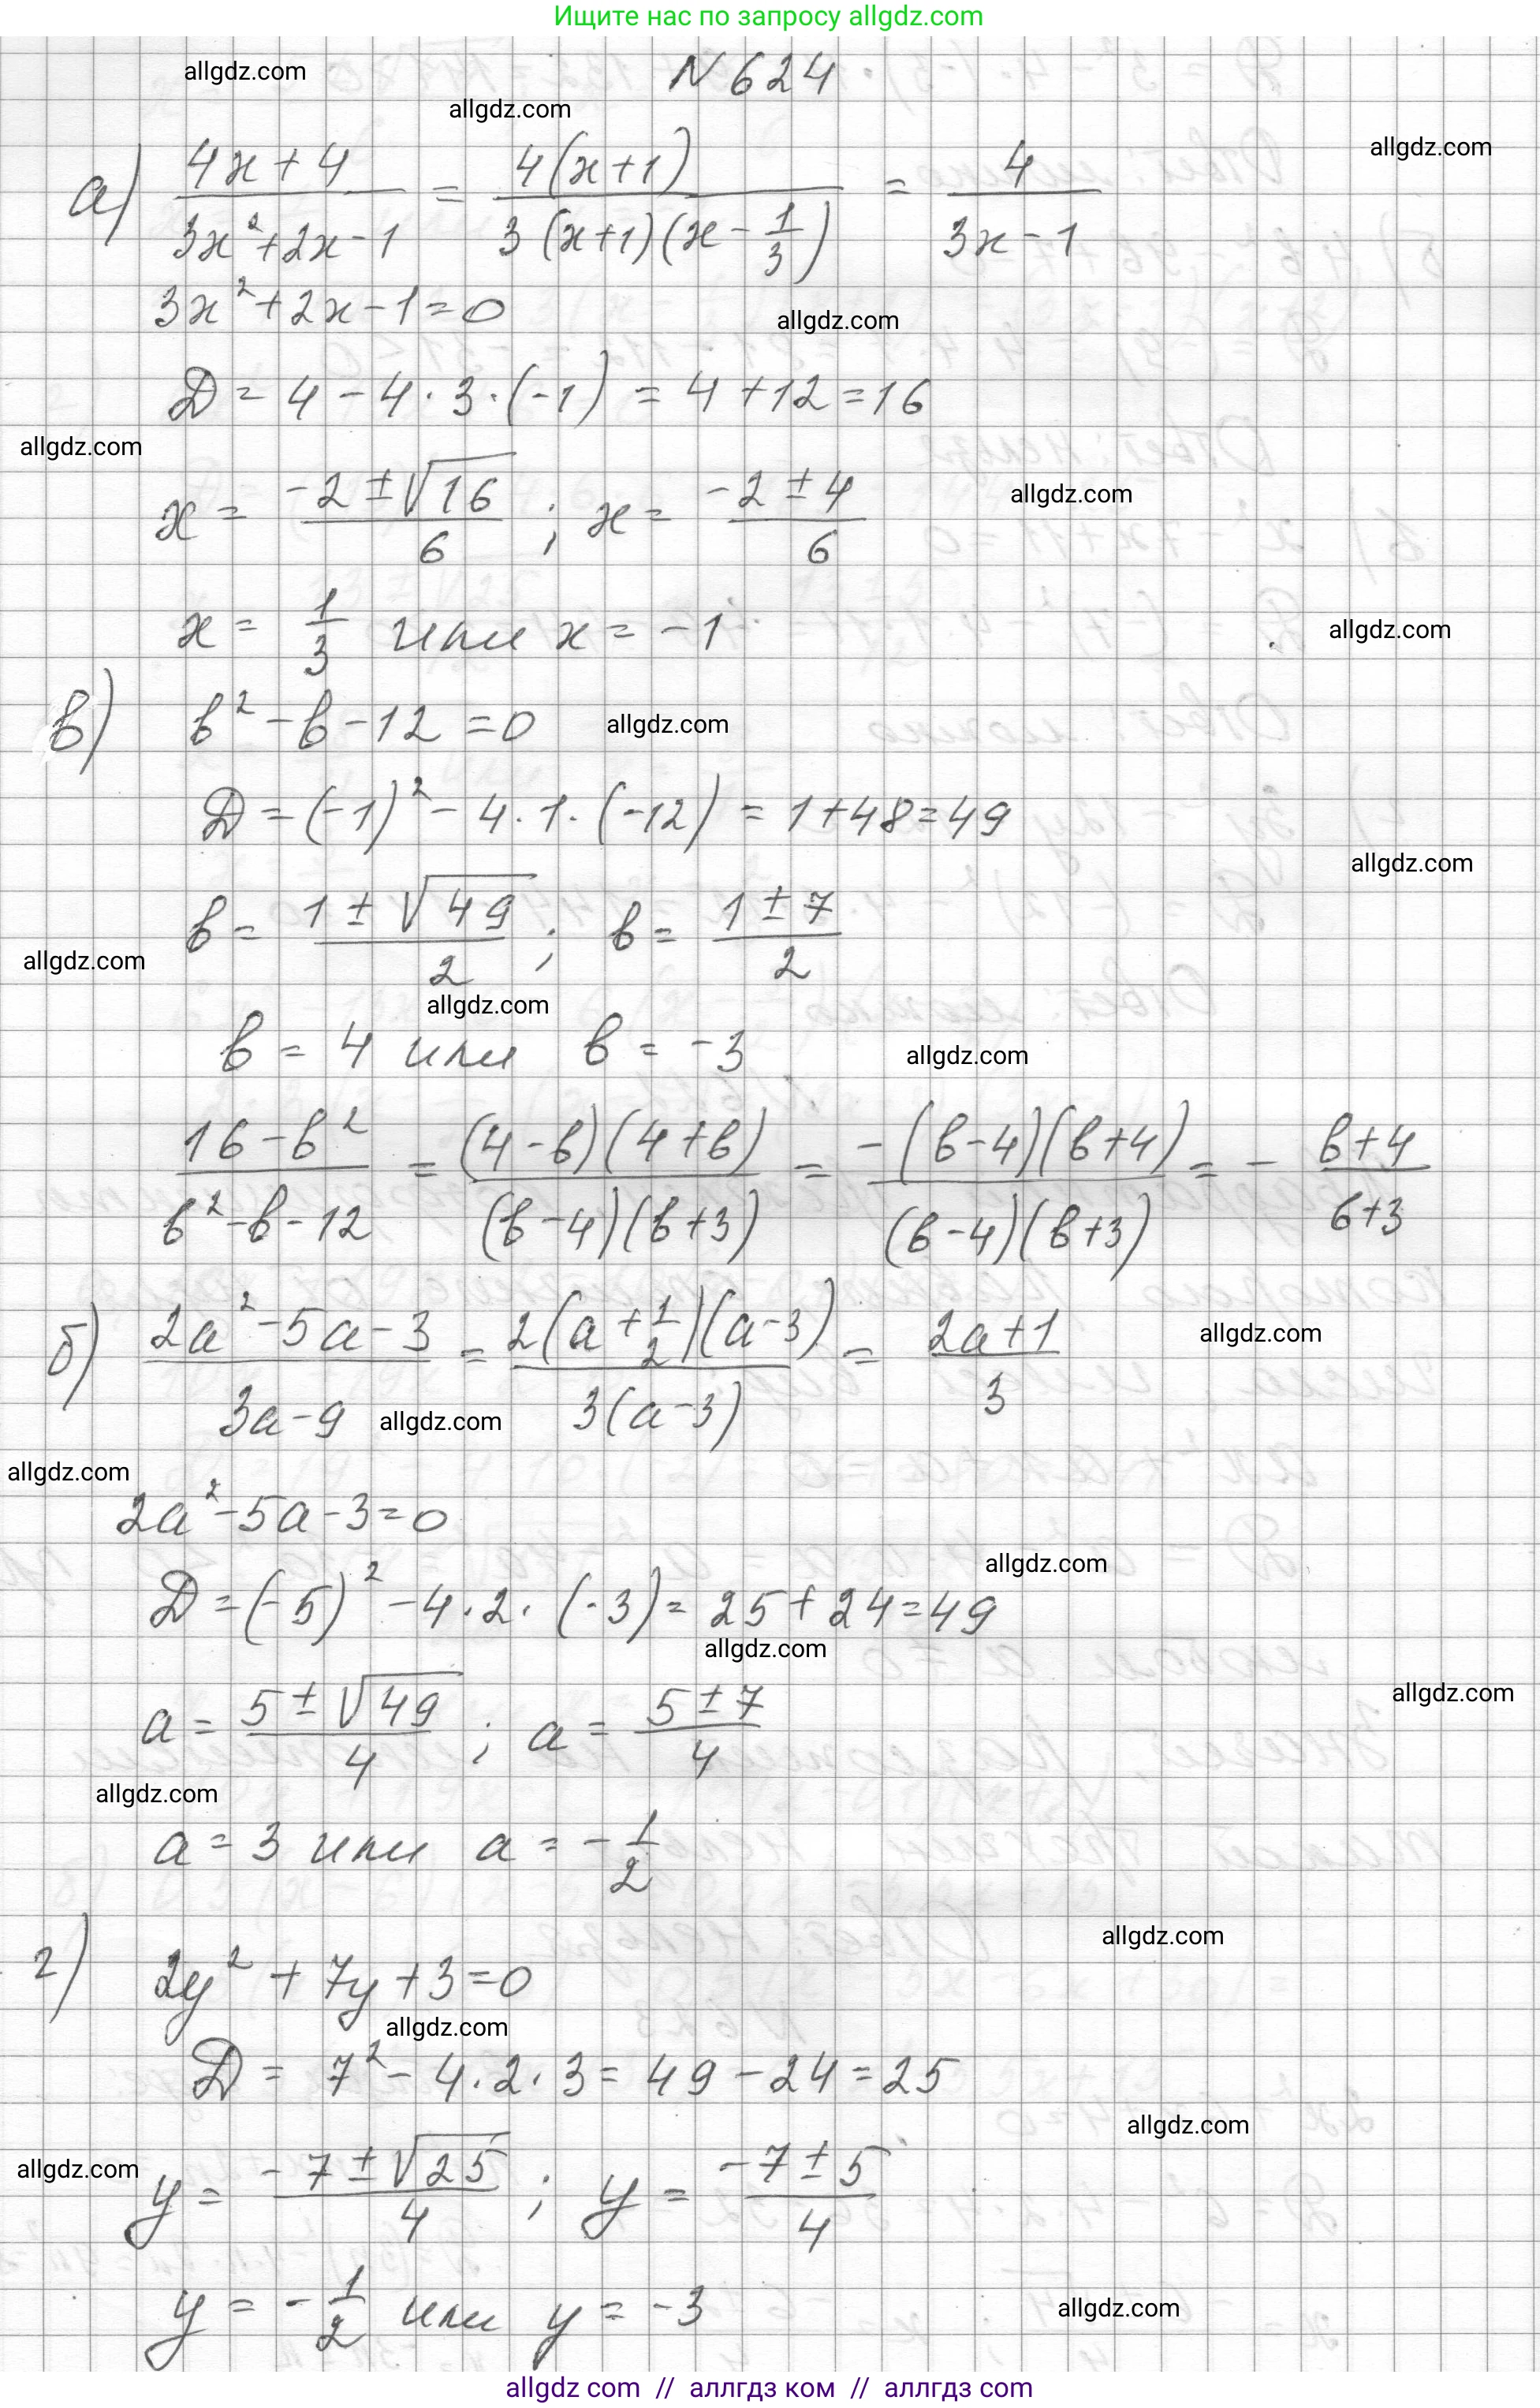 Ищите нас по запросу allgdz.com
allgdz.com
N 624
allgdz.com
allgdz.com
а) (4x+4)/(3x²+2x-1) = 4(x+1)/(3(x+1)(x-1/3)) = 4/(3x-1)
3x²+2x-1=0
allgdz.com
D = 4-4·3·(-1) = 4+12=16
allgdz.com
x = (-2±√16)/6 ; x = (-2±4)/6
allgdz.com
x = 1/3 или x = -1
allgdz.com
в) в²-в-12=0
allgdz.com
D=(-1)²-4·1·(-12) = 1+48=49
allgdz.com
в = (1±√49)/2 ; в = (1±7)/2
allgdz.com
allgdz.com
в = 4 или в = -3
allgdz.com
(16-в²)/(в²-в-12) = (4-в)(4+в)/((в-4)(в+3)) = -(в-4)(в+4)/((в-4)(в+3)) = - (в+4)/(в+3)
б) (2a²-5a-3)/(3a-9) = 2(a+1/2)(a-3)/(3(a-3)) = (2a+1)/3
allgdz.com
allgdz.com
allgdz.com
2a²-5a-3=0
allgdz.com
D=(-5)²-4·2·(-3)=25+24=49
allgdz.com
allgdz.com
a = (5±√49)/4 ; a = (5±7)/4
allgdz.com
a = 3 или a = -1/2
allgdz.com
г) 2y²+7y+3=0
allgdz.com
D = 7²-4·2·3=49-24=25
allgdz.com
allgdz.com
y = (-7±√25)/4 ; y = (-7±5)/4
y = -1/2 или y = -3
allgdz.com
allgdz com // аллгдз ком // аллгдз com